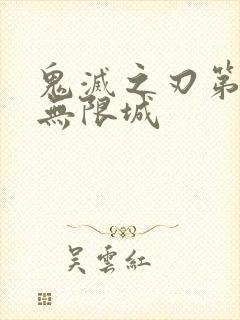 鬼滅之刃第
無限城
吳雲紅